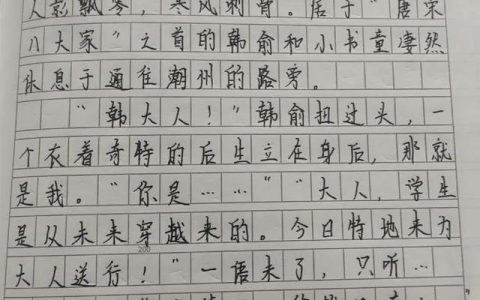 人影飘零，寒风刺骨。居于“唐宋
八大家”之首的韩俞和小书童凄然
休息于通往潮州的路旁。
“韩大人！”韩俞扭过头，一
个衣着奇特的后生立在身后，那就
是我。“你是……”“大人，学生
是从未来穿越来的。今日特地来为
200
大人送行！”一语未了，只听…